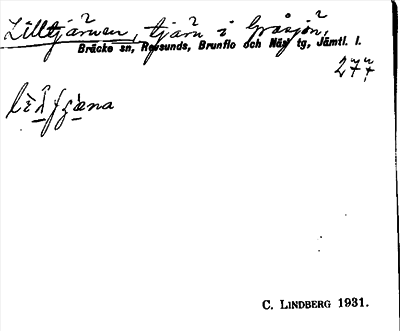 Lilltjärnen, tjärn i Gråsjön,
Bräcke sn, Revsunds, Brunflo och Näs tg, Jämtl. l.
277
C. LINDBERG 1931.